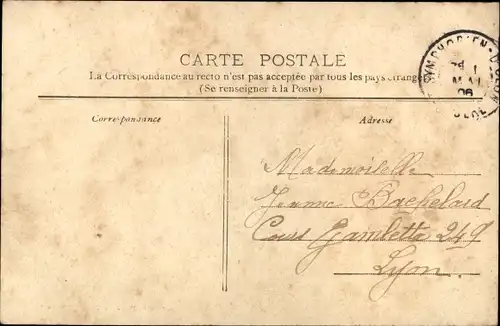 CARTE POSTALE
La Correspondance au recto n'est pas acceptée par tous les pays étrangers
(Se renseigner à la Poste)
Correspondance
Adresse
Mademoiselle
Jeanne Bachelard
Cours Gambetta 249
Lyon